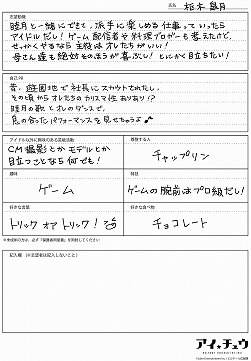 氏名 柏木 皐月
志望動機
睦月と一緒にできて、派手に楽しめる仕事っていったら
アイドルだし!ゲーム配信者や料理ブロガーも考えたけど、
せっかくやるなら主役はオレたちがいい!
母さん達も絶対そのほうが喜ぶし!とにかく目立ちたい!
自己PR
昔、遊園地で社長にスカウトされたし、
その頃からオレたちのカリスマ性ありあり!?
睦月の歌とオレのダンスで、
息の合ったパフォーマンスを見せちゃうよ♪
アイドル以外に興味のある芸能活動
CM撮影とかモデルとか
目立つことなら何でも!
尊敬する人
チャップリン
趣味
ゲーム
特技
ゲームの腕前はプロ級だし!
好きな言葉
トリック オア トリック!
好きな食べ物
チョコレート
※未成年の方は、必ず「保護者同意書」を同封してください
記入欄(※志望者は記入しないこと)
アイ★チュウ